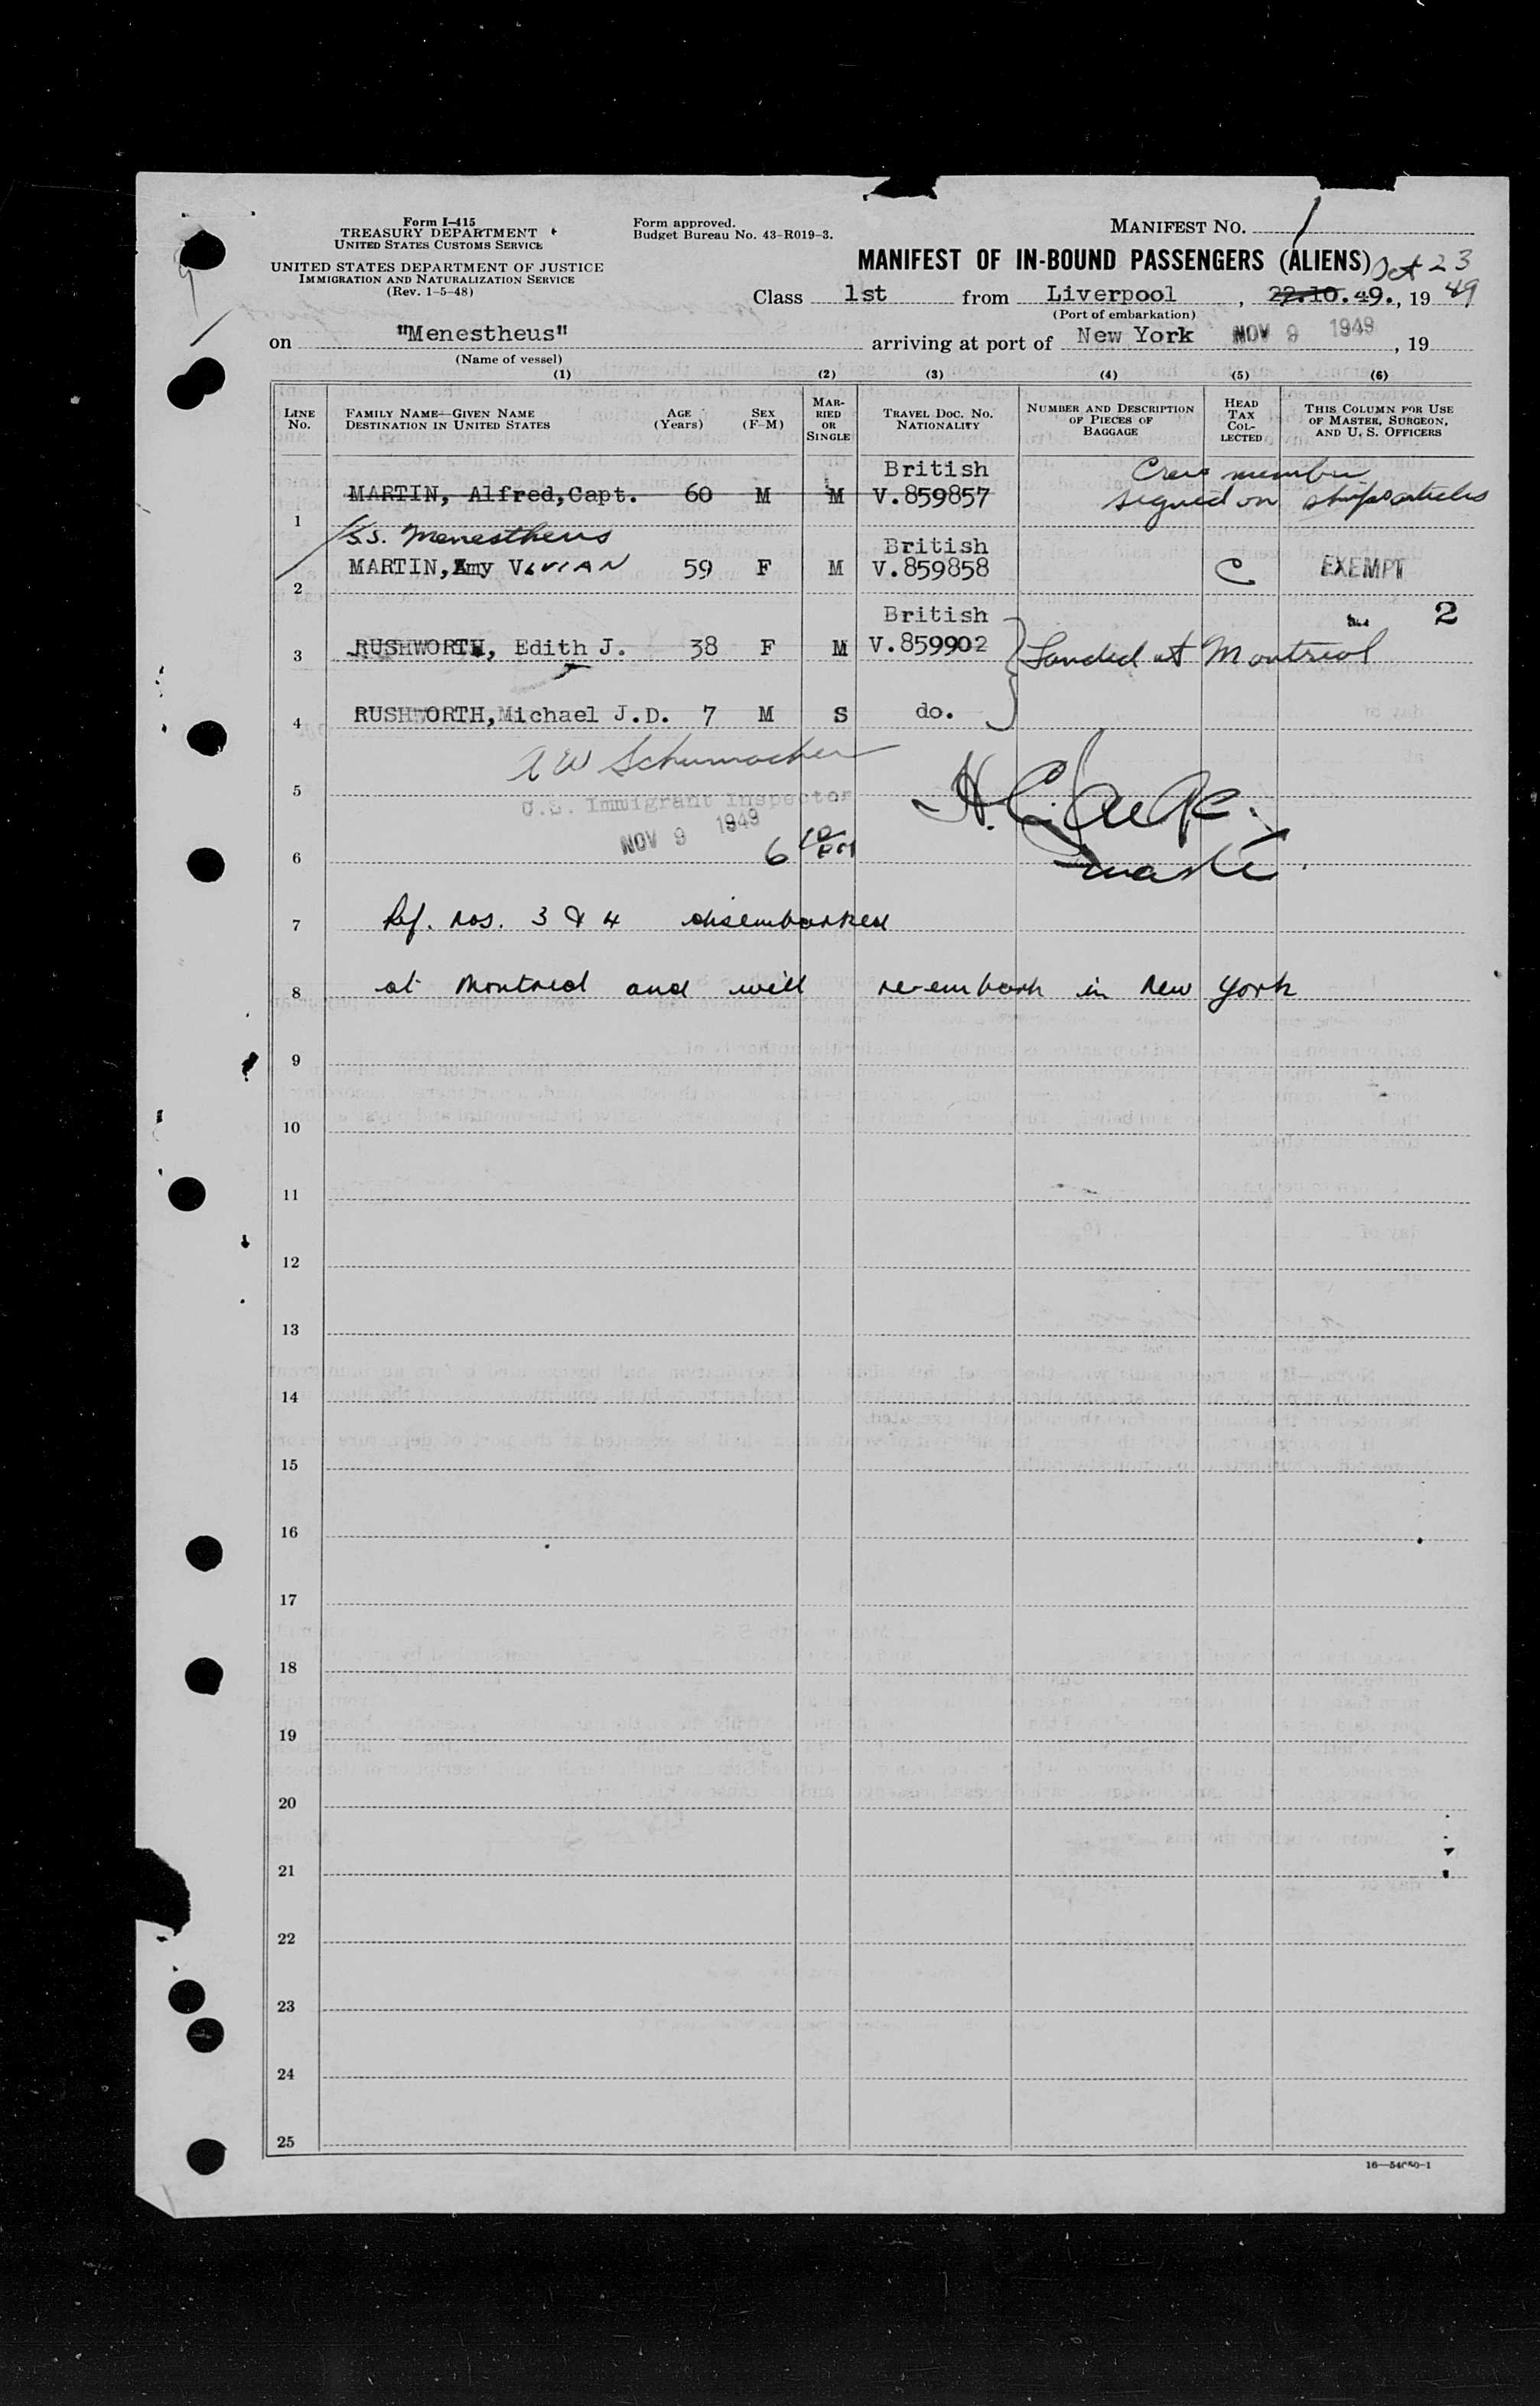 Form I-415
TREASURY DEPARTMENT
UNITED STATES CUSTOMS SERVICE
UNITED STATES DEPARTMENT OF JUSTICE
IMMIGRATION AND NATURALIZATION SERVICE
(Rev. 1-5-48)
Form approved.
Budget Bureau No. 43-R019-3.
MANIFEST NO. 1
MANIFEST OF IN-BOUND PASSENGERS (ALIENS) Oct 23
Class 1st from Liverpool , 22.10.49., 19 49
(Port of embarkation)
on "Menestheus" arriving at port of New York NOV 9 1949 , 19
(Name of vessel)
(1) (2) (3) (4) (5) (6)
LINE No. FAMILY NAME—GIVEN NAME DESTINATION IN UNITED STATES AGE (Years) SEX (F-M) MARRIED OR SINGLE TRAVEL DOC. NO. NATIONALITY NUMBER AND DESCRIPTION OF PIECES OF BAGGAGE HEAD TAX COLLECTED THIS COLUMN FOR USE OF MASTER, SURGEON, AND U. S. OFFICERS
British Crew member
1 MARTIN, Alfred, Capt. 60 M M V.859857 signed on ships articles
S.S. Menestheus British
2 MARTIN, Amy VIVIAN 59 F M V.859858 C EXEMPT
British 2
3 RUSHWORTH, Edith J. 38 F M V.859902 Landed at Montreal
4 RUSHWORTH, Michael J.D. 7 M S do.
A W Schumacher
5 U.S. Immigrant Inspector
NOV 9 1949
6 6 10 PM
7 Ref. nos. 3 & 4 disembarked
8 at Montreal and will re-embark in New York
9
10
11
12
13
14
15
16
17
18
19
20
21
22
23
24
25